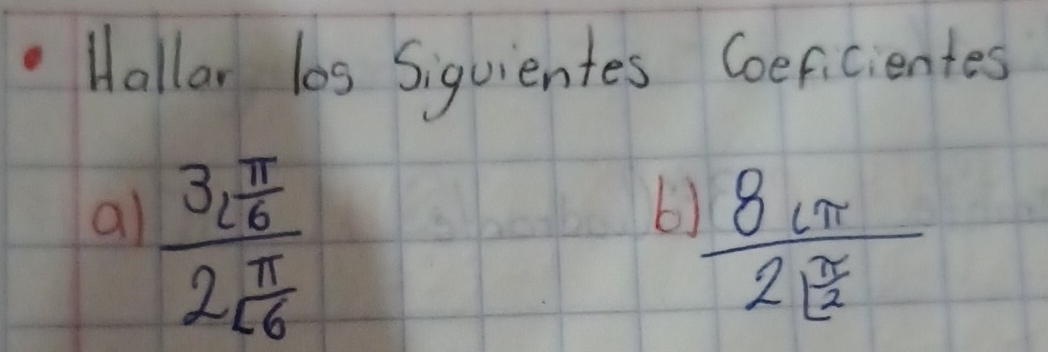 • Hallar los Siguientes Coeficientes
a) 3∟π/6 / 2∟π/6 b) 8∟π / 2∟π/2